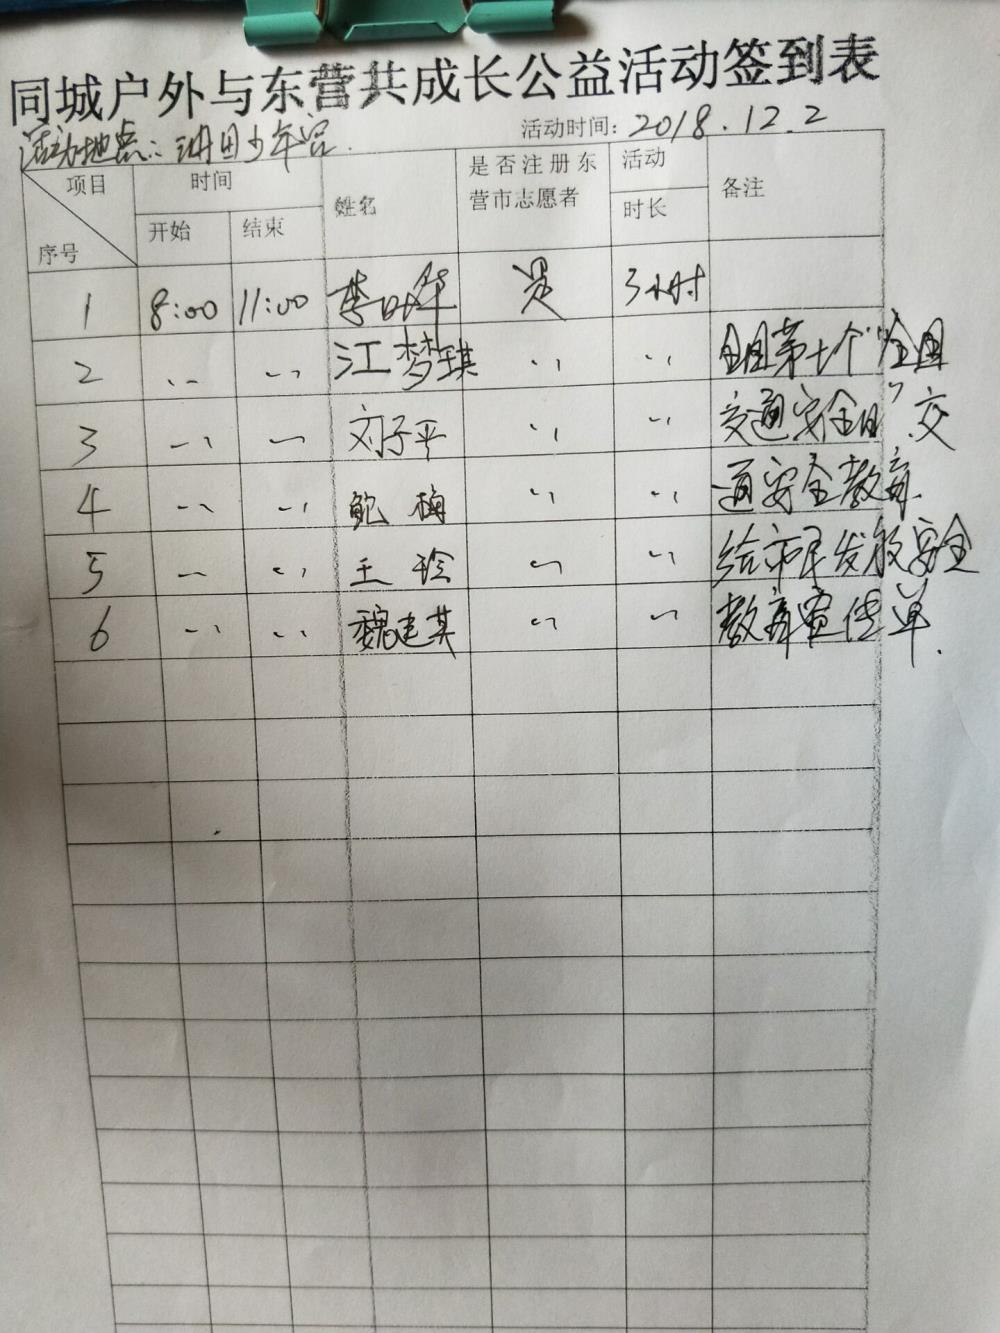 同城户外与东营共成长公益活动签到表
活动地点: 油田少年宫.
活动时间: 2018.12.2
项目 时间 姓名 是否注册东营市志愿者 活动时长 备注
序号 开始 结束
1 8:00 11:00 李 华 是 3小时
2 〃 〃 江梦琪 〃 〃 第十个“全国
3 〃 〃 刘子平 〃 〃 交通安全日”.交
4 〃 〃 鲍梅 〃 〃 通安全教育.
5 〃 〃 王玲 〃 〃 给市民发放安全
6 〃 〃 魏建英 〃 〃 教育宣传单.